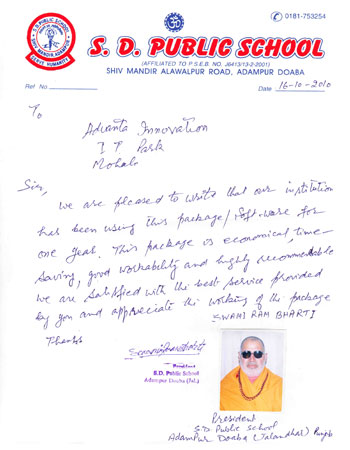 S. D. PUBLIC SCHOOL
SHIV MANDIR, ADAMPUR
SERVE HUMANITY
ॐ
✆ 0181-753254
S. D. PUBLIC SCHOOL
(AFFILIATED TO P.S.E.B. NO. J6413/13-2-2001)
SHIV MANDIR ALAWALPUR ROAD, ADAMPUR DOABA
Ref. No.
Date 16-10-2010
To
Advanta Innovation
I T Park
Mohali
Sir,
We are pleased to write that our institution
has been using this package/software for
one year. This package is economical, time-
saving, good workability and highly recommendable
We are satisfied with the best service provided
by you and appreciate the working of the package
SWAMI RAM BHARTI
Thanks
President
S.D. Public School
Adampur Doaba (Jal.)
President
S.D Public School
Adampur Doaba (Jalandhar) Punjb